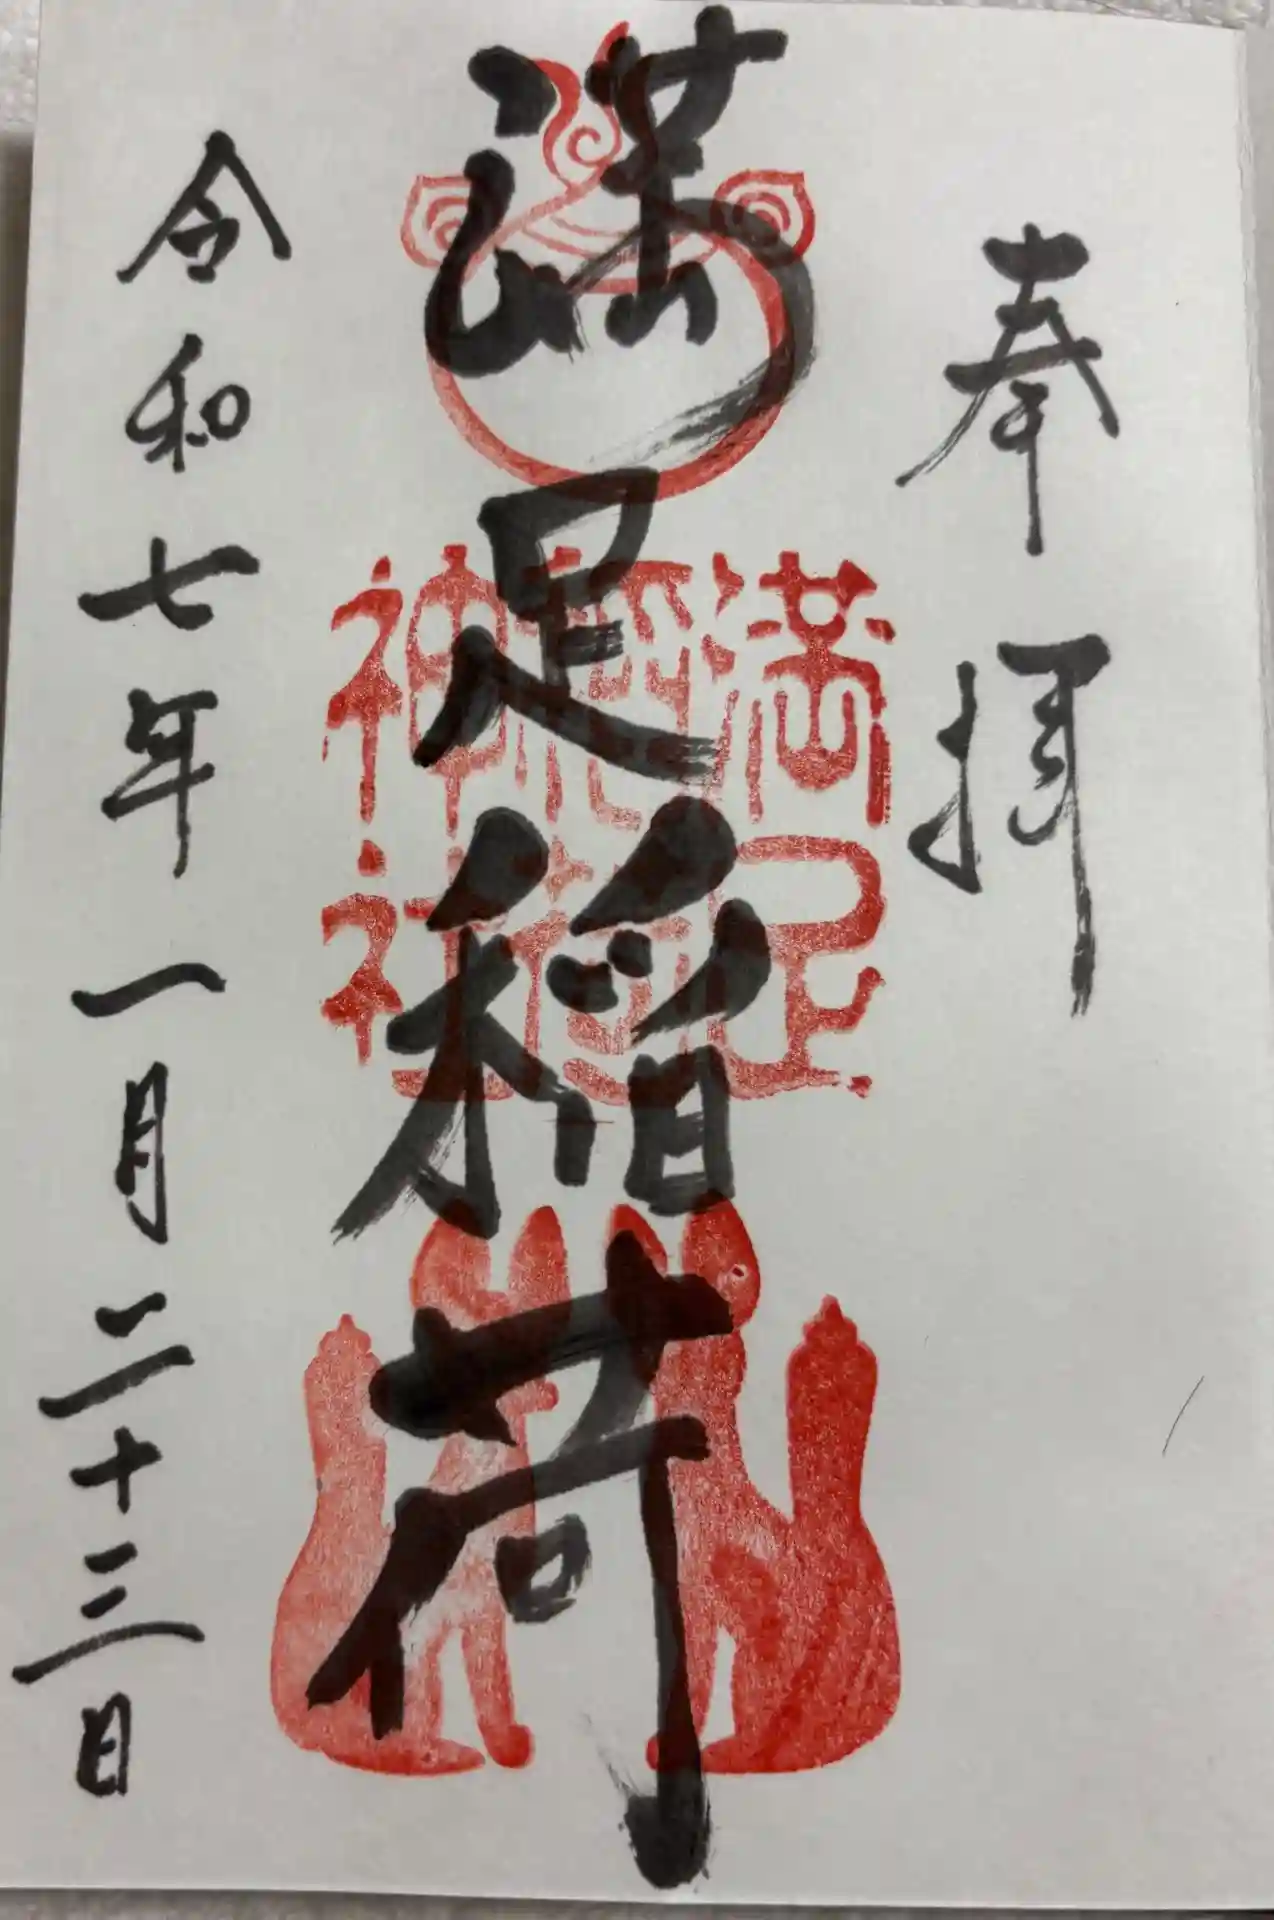 奉拝
満足稲荷
満足
稲荷
神社
令和七年一月二十三日